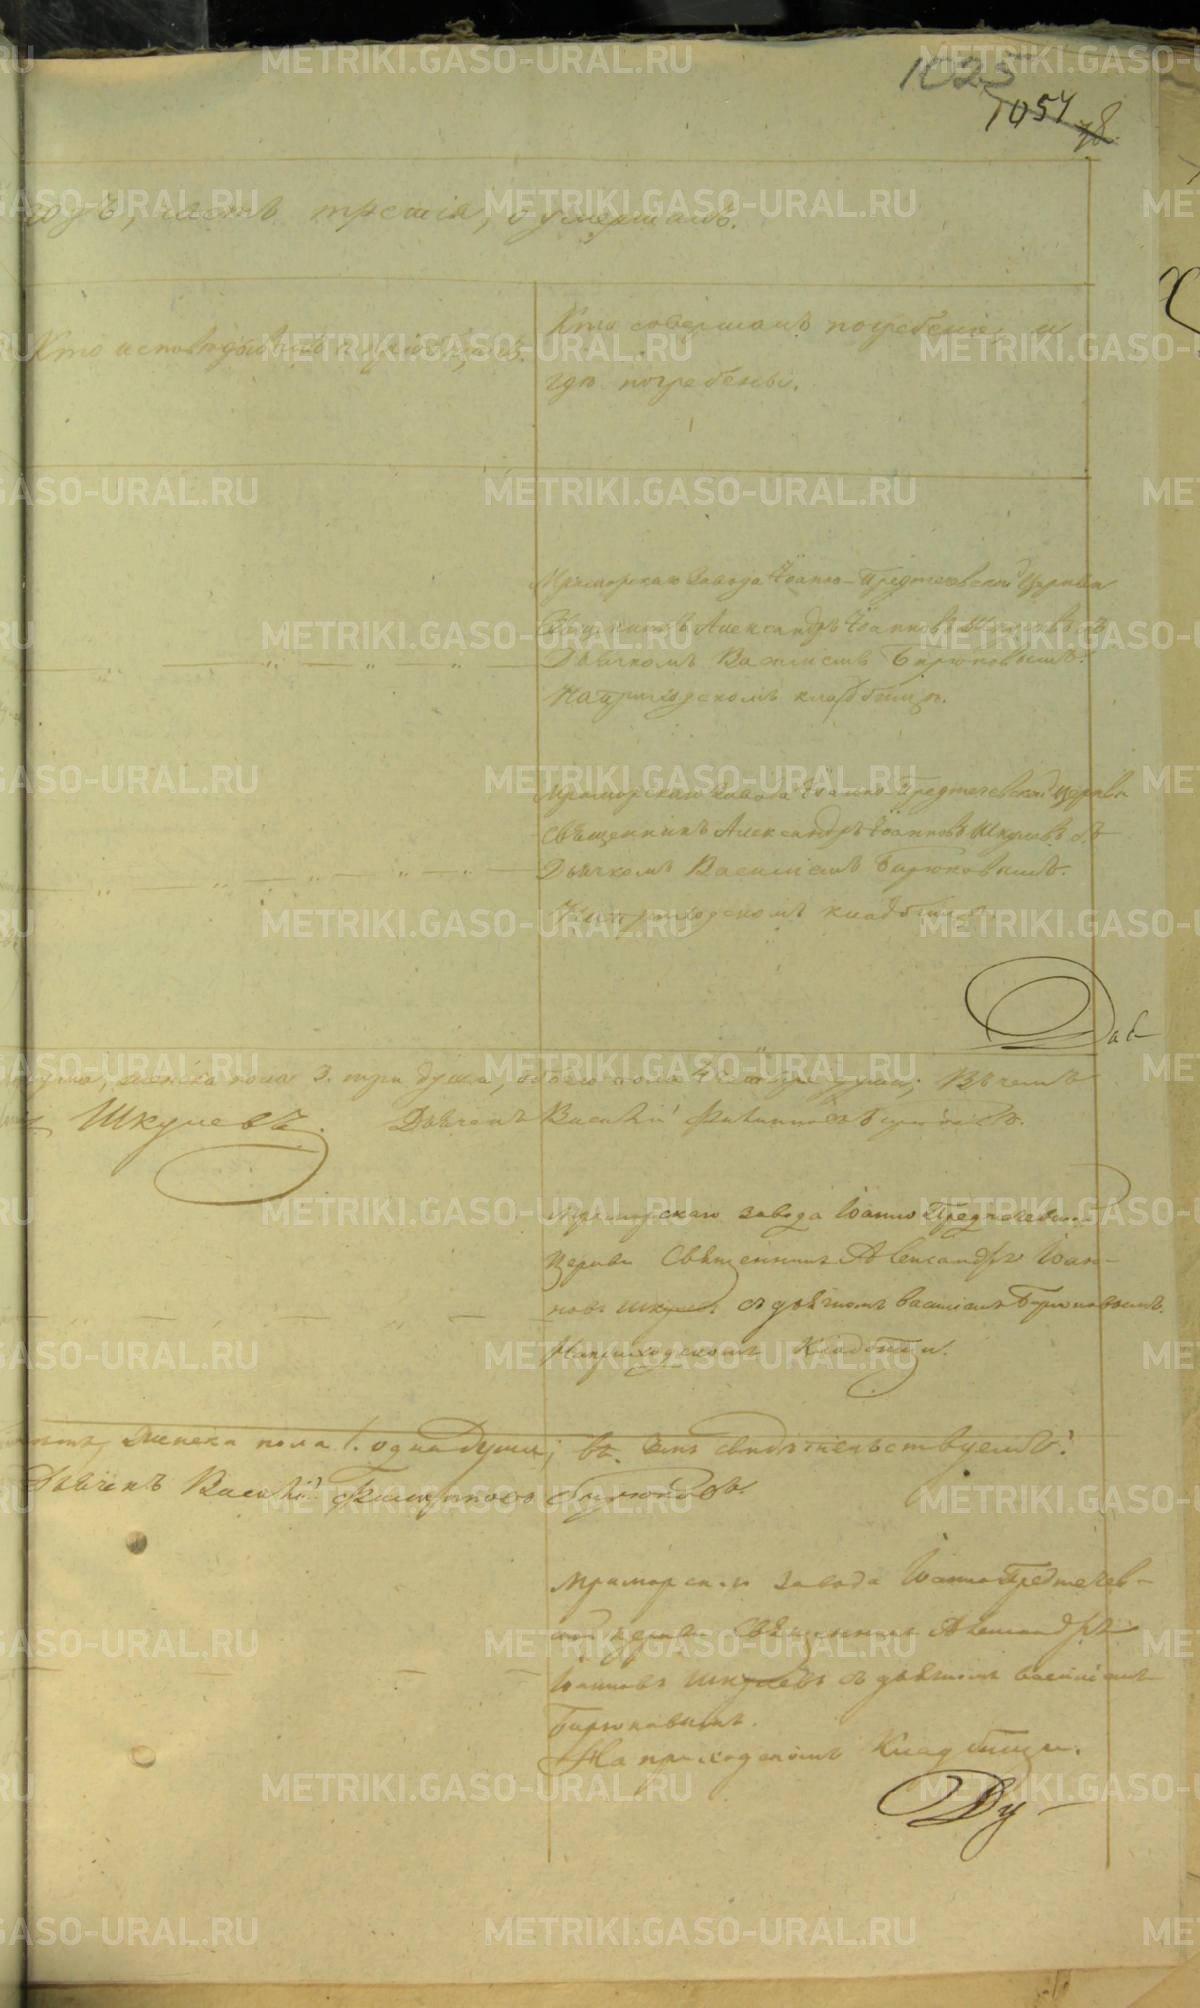 1025
1054
годъ, часть третія, о умершихъ.
Кто исповѣдывалъ и пріобщалъ.
Кто совершалъ погребеніе, и
гдѣ погребены.
Мраморскаго завода Іоанно-Предтечевской Церкви
Священникъ Александръ Іоанновъ Шкулевъ съ
Дьячкомъ Василіемъ Бирюковымъ.
На приходскомъ кладбищѣ.
Мраморскаго завода Іоанно-Предтечевской церкви
Священникъ Александръ Іоанновъ Шкулевъ съ
Дьячкомъ Василіемъ Бирюковымъ.
На приходскомъ кладбищѣ.
Даб
женска пола 3. три души, обоего пола 4 четыре души; Въ чемъ
Шкулевъ. Дьячекъ Василій Филипповъ Бирюковъ.
Мраморскаго завода Іоанно Предтечевской
Церкви Священникъ Александръ Іоан-
новъ Шкулев. съ дьячкомъ василіемъ Бирюковымъ.
На приходскомъ Кладбищи.
женска пола 1. одна душа; въ чемъ свидѣтельствуемъ:
Дьячекъ Василій Филипповъ Бирюковъ.
Мраморскаго завода Іоанно Предтечев-
ской церкви Священникъ Александръ
Іоанновъ Шкулевъ съ дьячкомъ василіемъ
Бирюковымъ.
На приходскомъ Кладбищи.
Ду-
METRIKI.GASO-URAL.RU